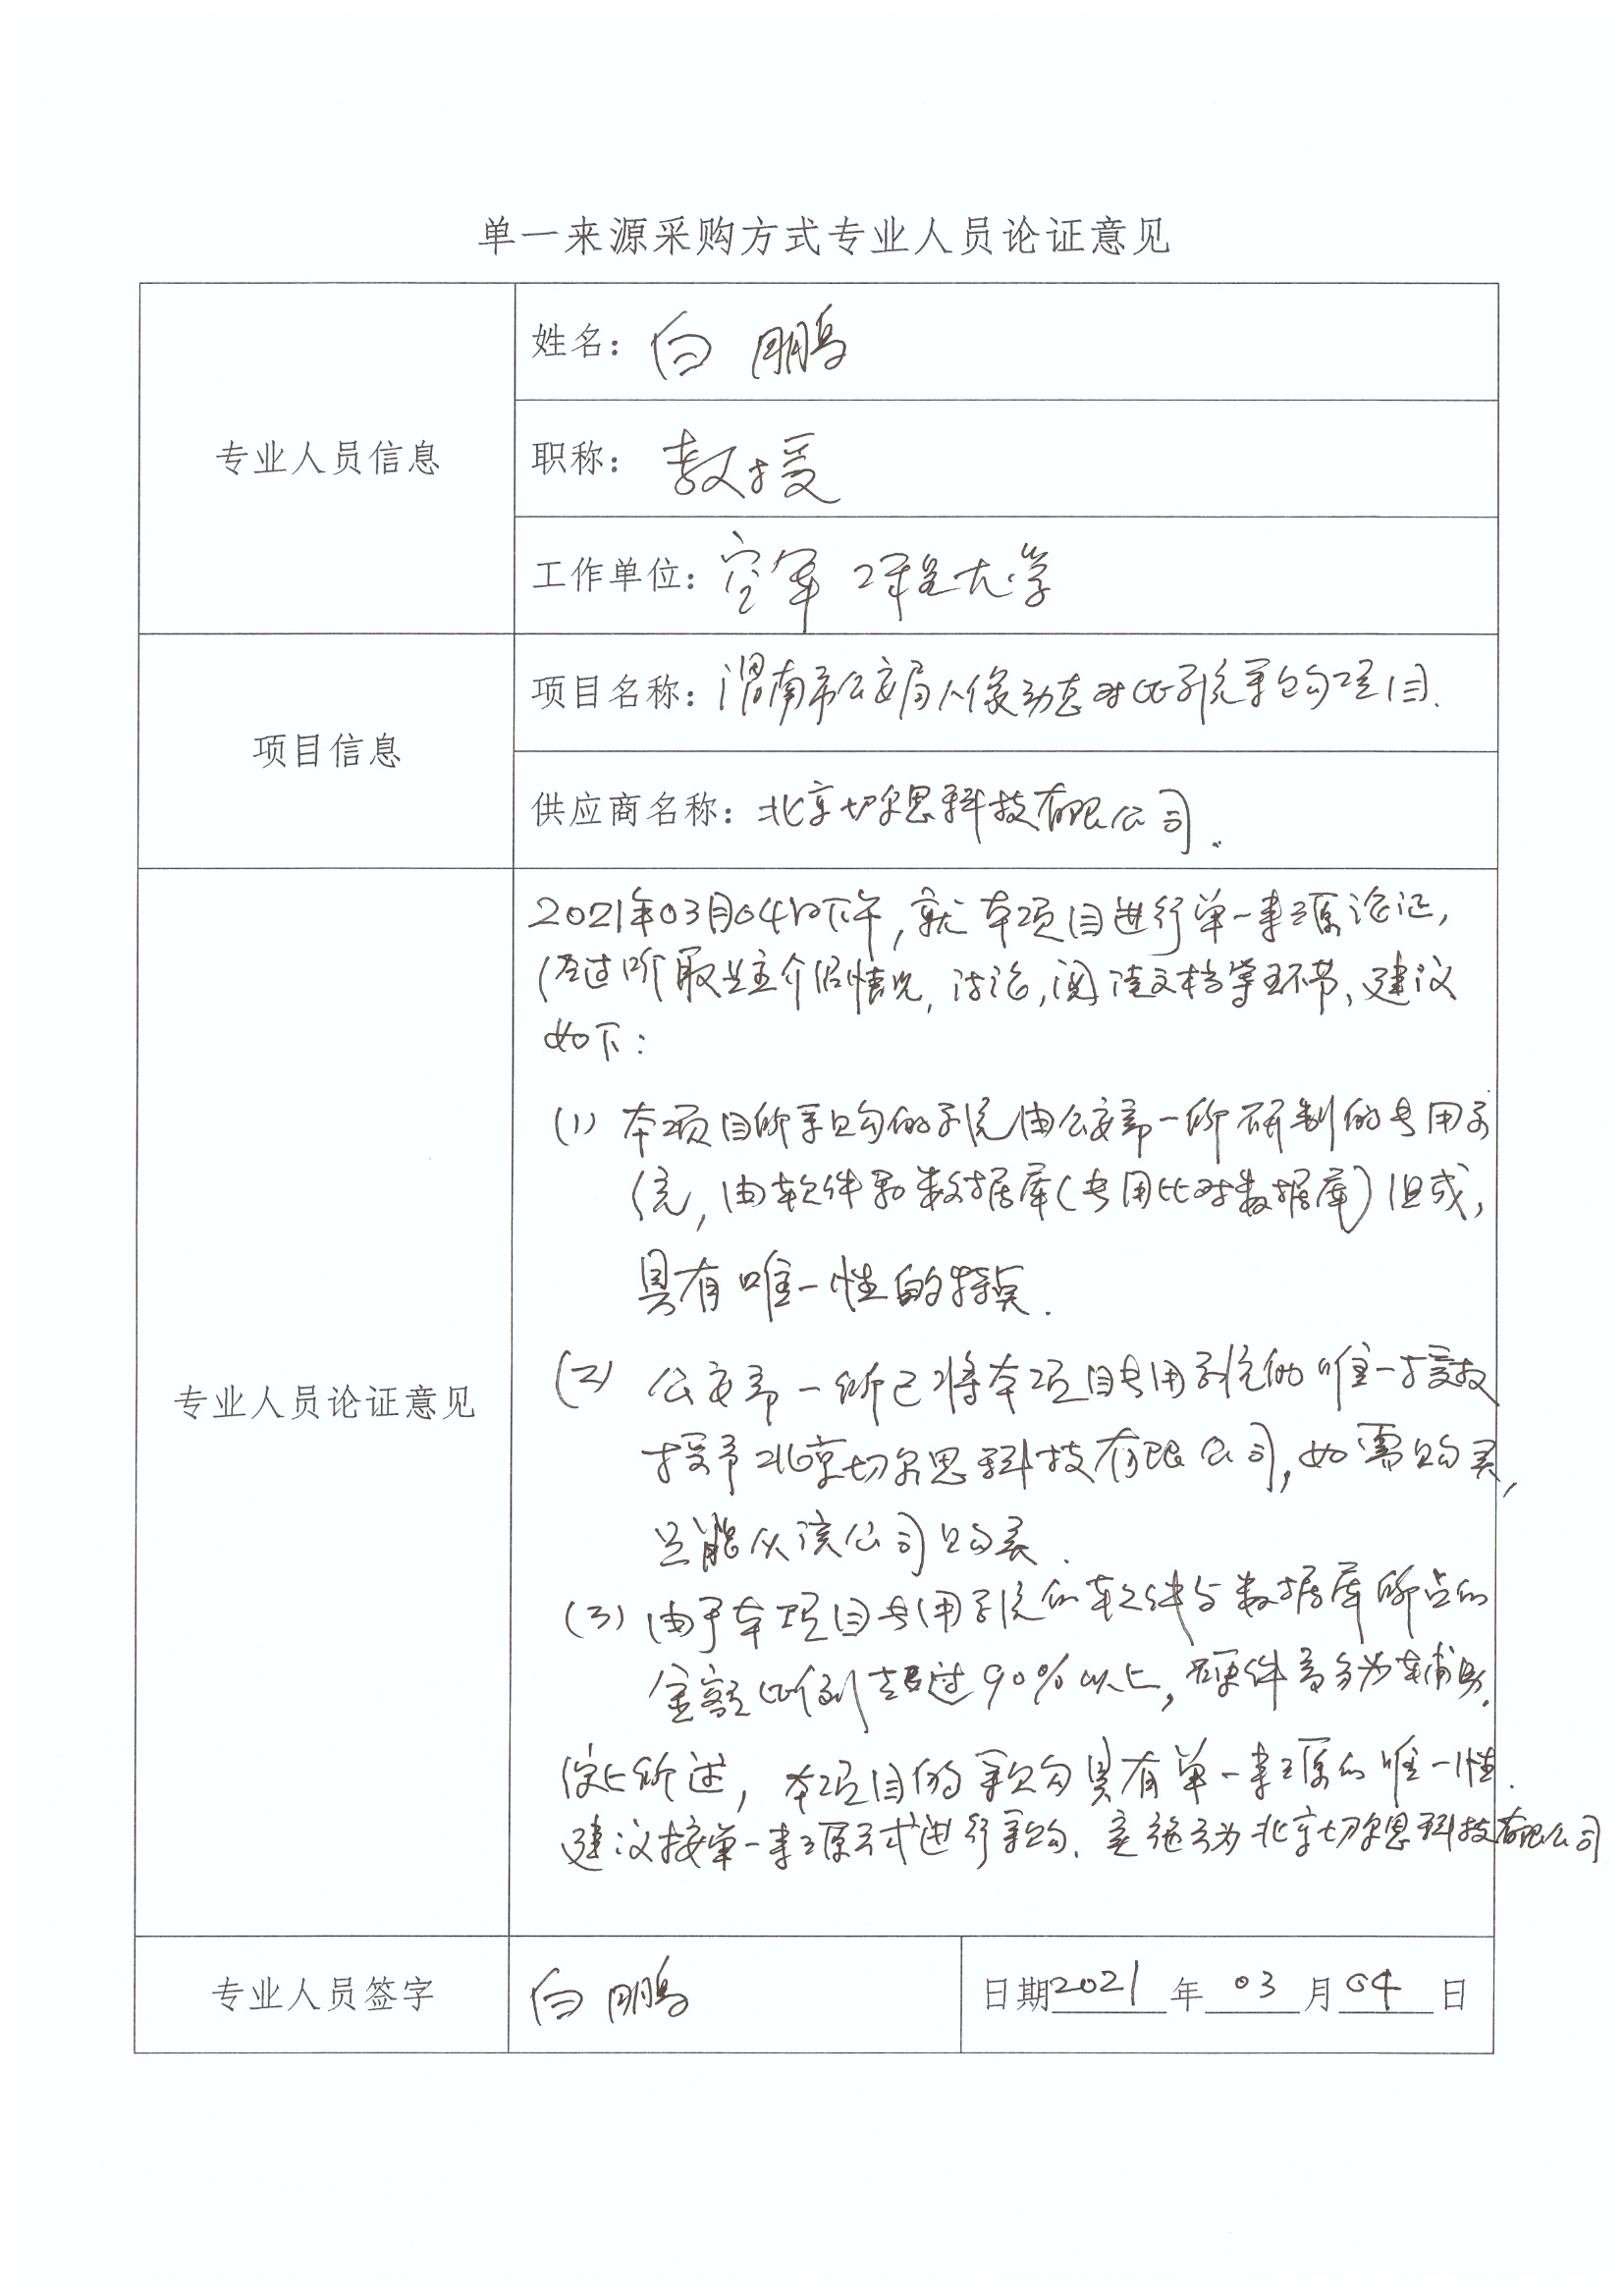 单一来源采购方式专业人员论证意见
专业人员信息
姓名：白鹏
职称：教授
工作单位：空军工程大学
项目信息
项目名称：渭南市公安局人像动态对比系统采购项目.
供应商名称：北京切尔思科技有限公司.
专业人员论证意见
2021年03月04日下午,就本项目进行单一来源论证,
经过听取业主介绍情况,讨论,阅读文档等环节、建议
如下:
(1) 本项目所采购的系统由公安部一所研制的专用系
统,由软件和数据库(专用比对数据库)组成,
具有唯一性的特点.
(2) 公安部一所已将本项目专用系统的唯一授权
授予北京切尔思科技有限公司,如需购买,
只能从该公司购买.
(3) 由于本项目专用系统的软件与数据库所占的
金额比例超过90%以上,硬件部分为辅助.
综上所述,本项目的采购具有单一来源的唯一性.
建议按单一来源方式进行采购.实施方为北京切尔思科技有限公司
专业人员签字
白鹏
日期2021年03月04日